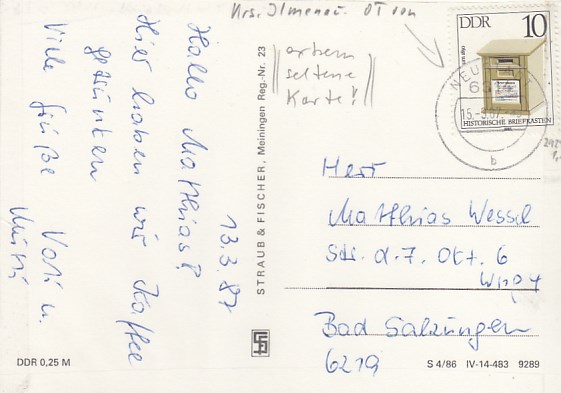 Krs. Ilmenau. OT von
extrem
seltene
Karte!
DDR 10
um 1900
HISTORISCHE BRIEFKASTEN
15.-3.87
b
13.3.87
Hallo Matthias!
Hier haben wir Kaffee
getrunken
Viele Grüße
Vati u.
Mutti
STRAUB & FISCHER, Meiningen Reg.-Nr. 23
Herr
Matthias Wessel
Str. d. 7. Okt. 6
Bad Salzungen
6219
DDR 0,25 M
S 4/86 IV-14-483 9289